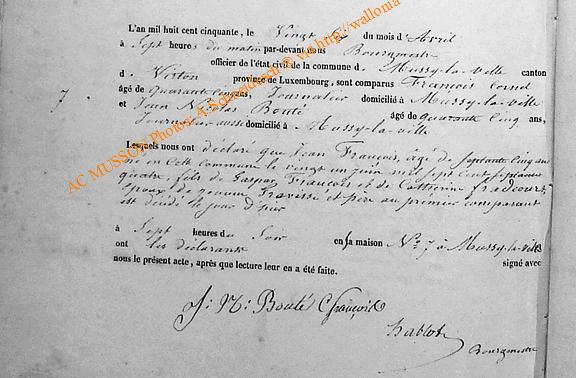 L'an mil huit cent cinquante, le Vingt du mois d'Avril
à Sept heures du matin par-devant nous Bourgmestre
officier de l'état civil de la commune d. Mussy-la-Ville canton
d. Virton province de Luxembourg, sont comparus François Cornel
7 âgé de Quarante cinq ans, Journalier domicilié à Mussy-la-ville
et Jean Nicolas Bouté âgé de quarante Cinq ans,
Journalier aussi domicilié à Mussy-la-ville
Lesquels nous ont déclaré que Jean François, âgé de septante Cinq ans
né en Cette Commune le vingt un juin mil sept cent septante
quatre, fils de Gaspar François et de Catherine
époux de jeanne et père au premier comparant
est décédé le jour d'hier
à Sept heures du Soir en sa maison N° 7 à Mussy-la-ville
ont les déclarants signé avec
nous le présent acte, après que lecture leur en a été faite.
J: N: Bouté C françois
hablot
Bourgmestre
AC MUSSON Photos: A. Schmidtbach © via http://wallonia